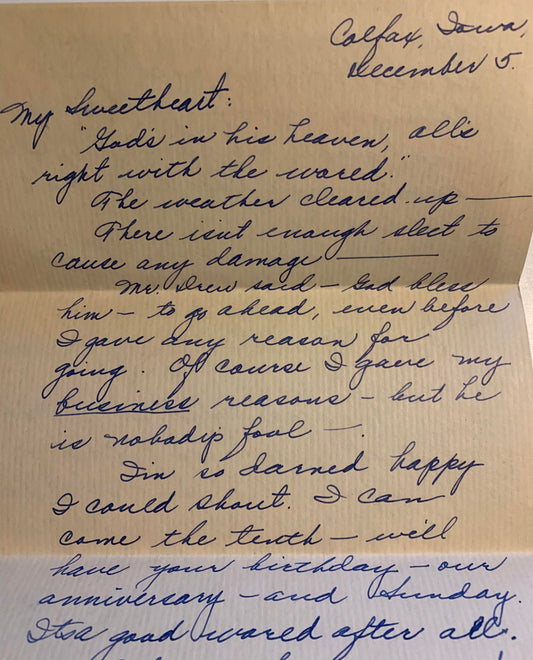 Colfax, Iowa,
December 5.
My Sweetheart:
"God's in his heaven, all's
right with the world."
The weather cleared up —
There isnt enough sleet to
cause any damage —
Mr. Drew said – God bless
him – to go ahead, even before
I gave any reason for
going. Of course I gave my
business reasons – but he
is nobodys fool –.
I'm so darned happy
I could shout. I can
come the tenth – we'll
have your birthday – our
anniversary – and Sunday.
Itsa good world after all.